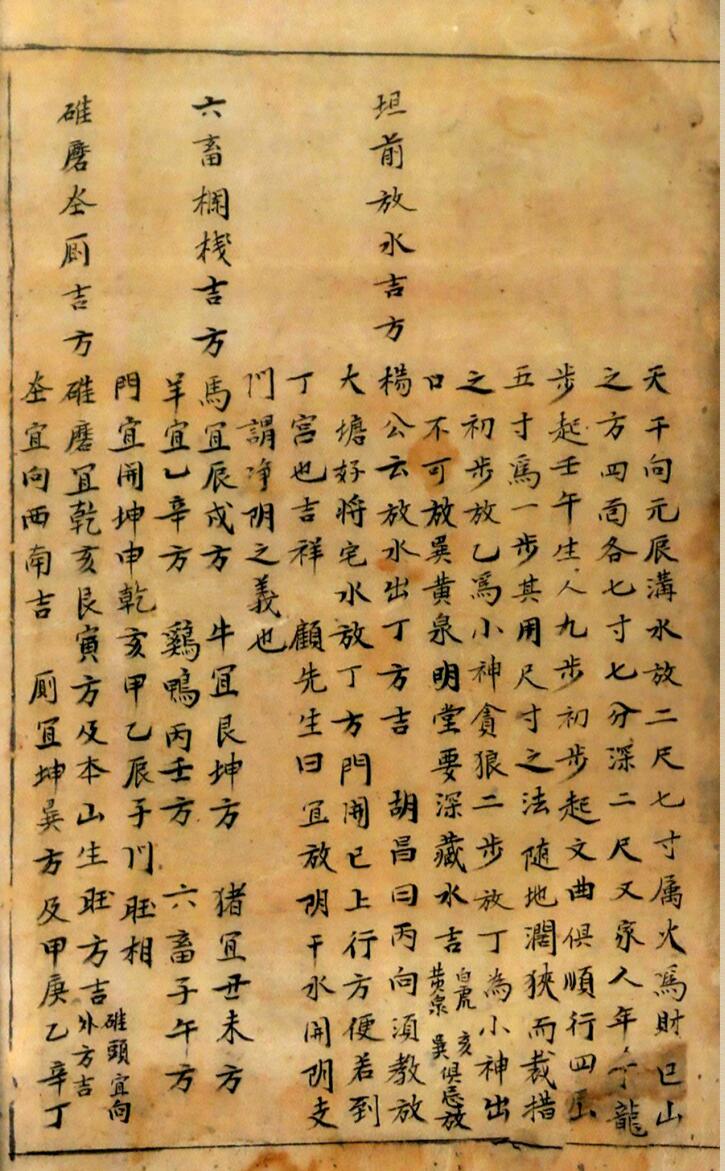 天干向元辰溝水放二尺七寸属火爲財巳山
之方四面各七寸七分深二尺又家人年丁龍
步起壬午生人九步初步起文曲俱順行四
五寸爲一步其用尺寸之法随地濶狹而裁措
之初步放乙爲小神貪狼二步放丁為小神出
口不可放巽黄泉明堂要深藏水吉 白虎 亥
黄泉 巽 俱忌放
坦前放水吉方
楊公云放水出丁方吉 胡昌曰丙向須教放
大塘好將宅水放丁方門開巳上行方便若到
丁宮也吉祥 顧先生曰宜放阴干水開阴支
门謂净阴之義也
六畜欄栈吉方
馬宜辰戌方 牛宜艮坤方 猪宜丑未方
羊宜乙辛方 鷄鴨丙壬方 六畜子午方
門宜開坤申乾亥甲乙辰子门旺相
碓磨圶厠吉方
碓磨宜乾亥艮寅方及本山生旺方吉 碓頭宜向
外方吉
圶宜向西南吉 厠宜坤巽方及甲庚乙辛丁